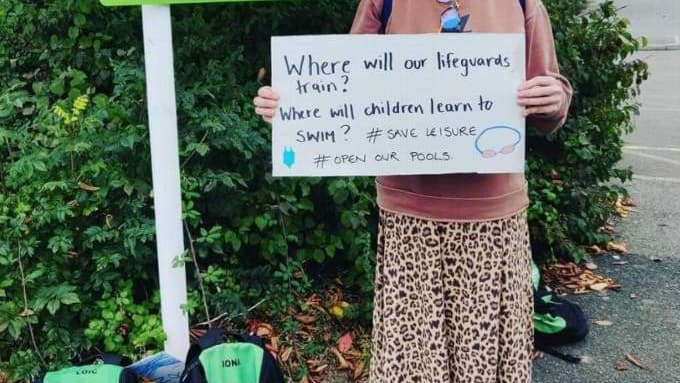 Where will our lifeguards
train?
Where will children learn to
SWIM? # SAVE LEISURE
# OPEN OUR POOLS.
LOIC
IONI